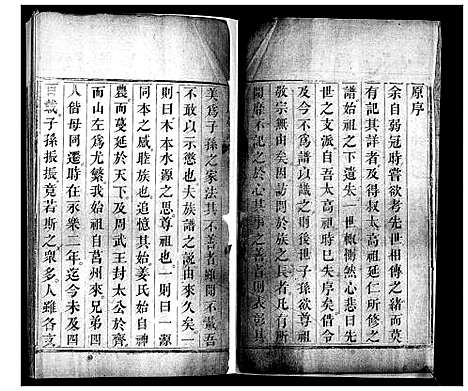 原序
余自弱冠時嘗欲考先世相傳之緒而莫
有記其詳者及得叔太高祖延仁所修之
譜始祖之下遺失一世輒慚然心悲日先
世之支派自吾太高祖時已失序矣倘今
及今不為譜以識之則後世子孫欲尊祖
敬宗無由矣因訪問於族之長者凡有所
聞靡不記之於心其事之善者則表彰其
美為子孫之家法其不善者雖聞不載吾
不敢以示慾也夫族譜之說由來久矣一
則曰木本水源之思尊祖也一則曰一源
同本之戚睦族也追憶其始姜氏始自神
農而蔓延於天下及周武王封太公於齊
而山左為尤繁我始祖自莒州來兄弟四
人偕母同遷時在永樂二年迄今五六四
百載子孫振振竟若斯之衆多人雖各支